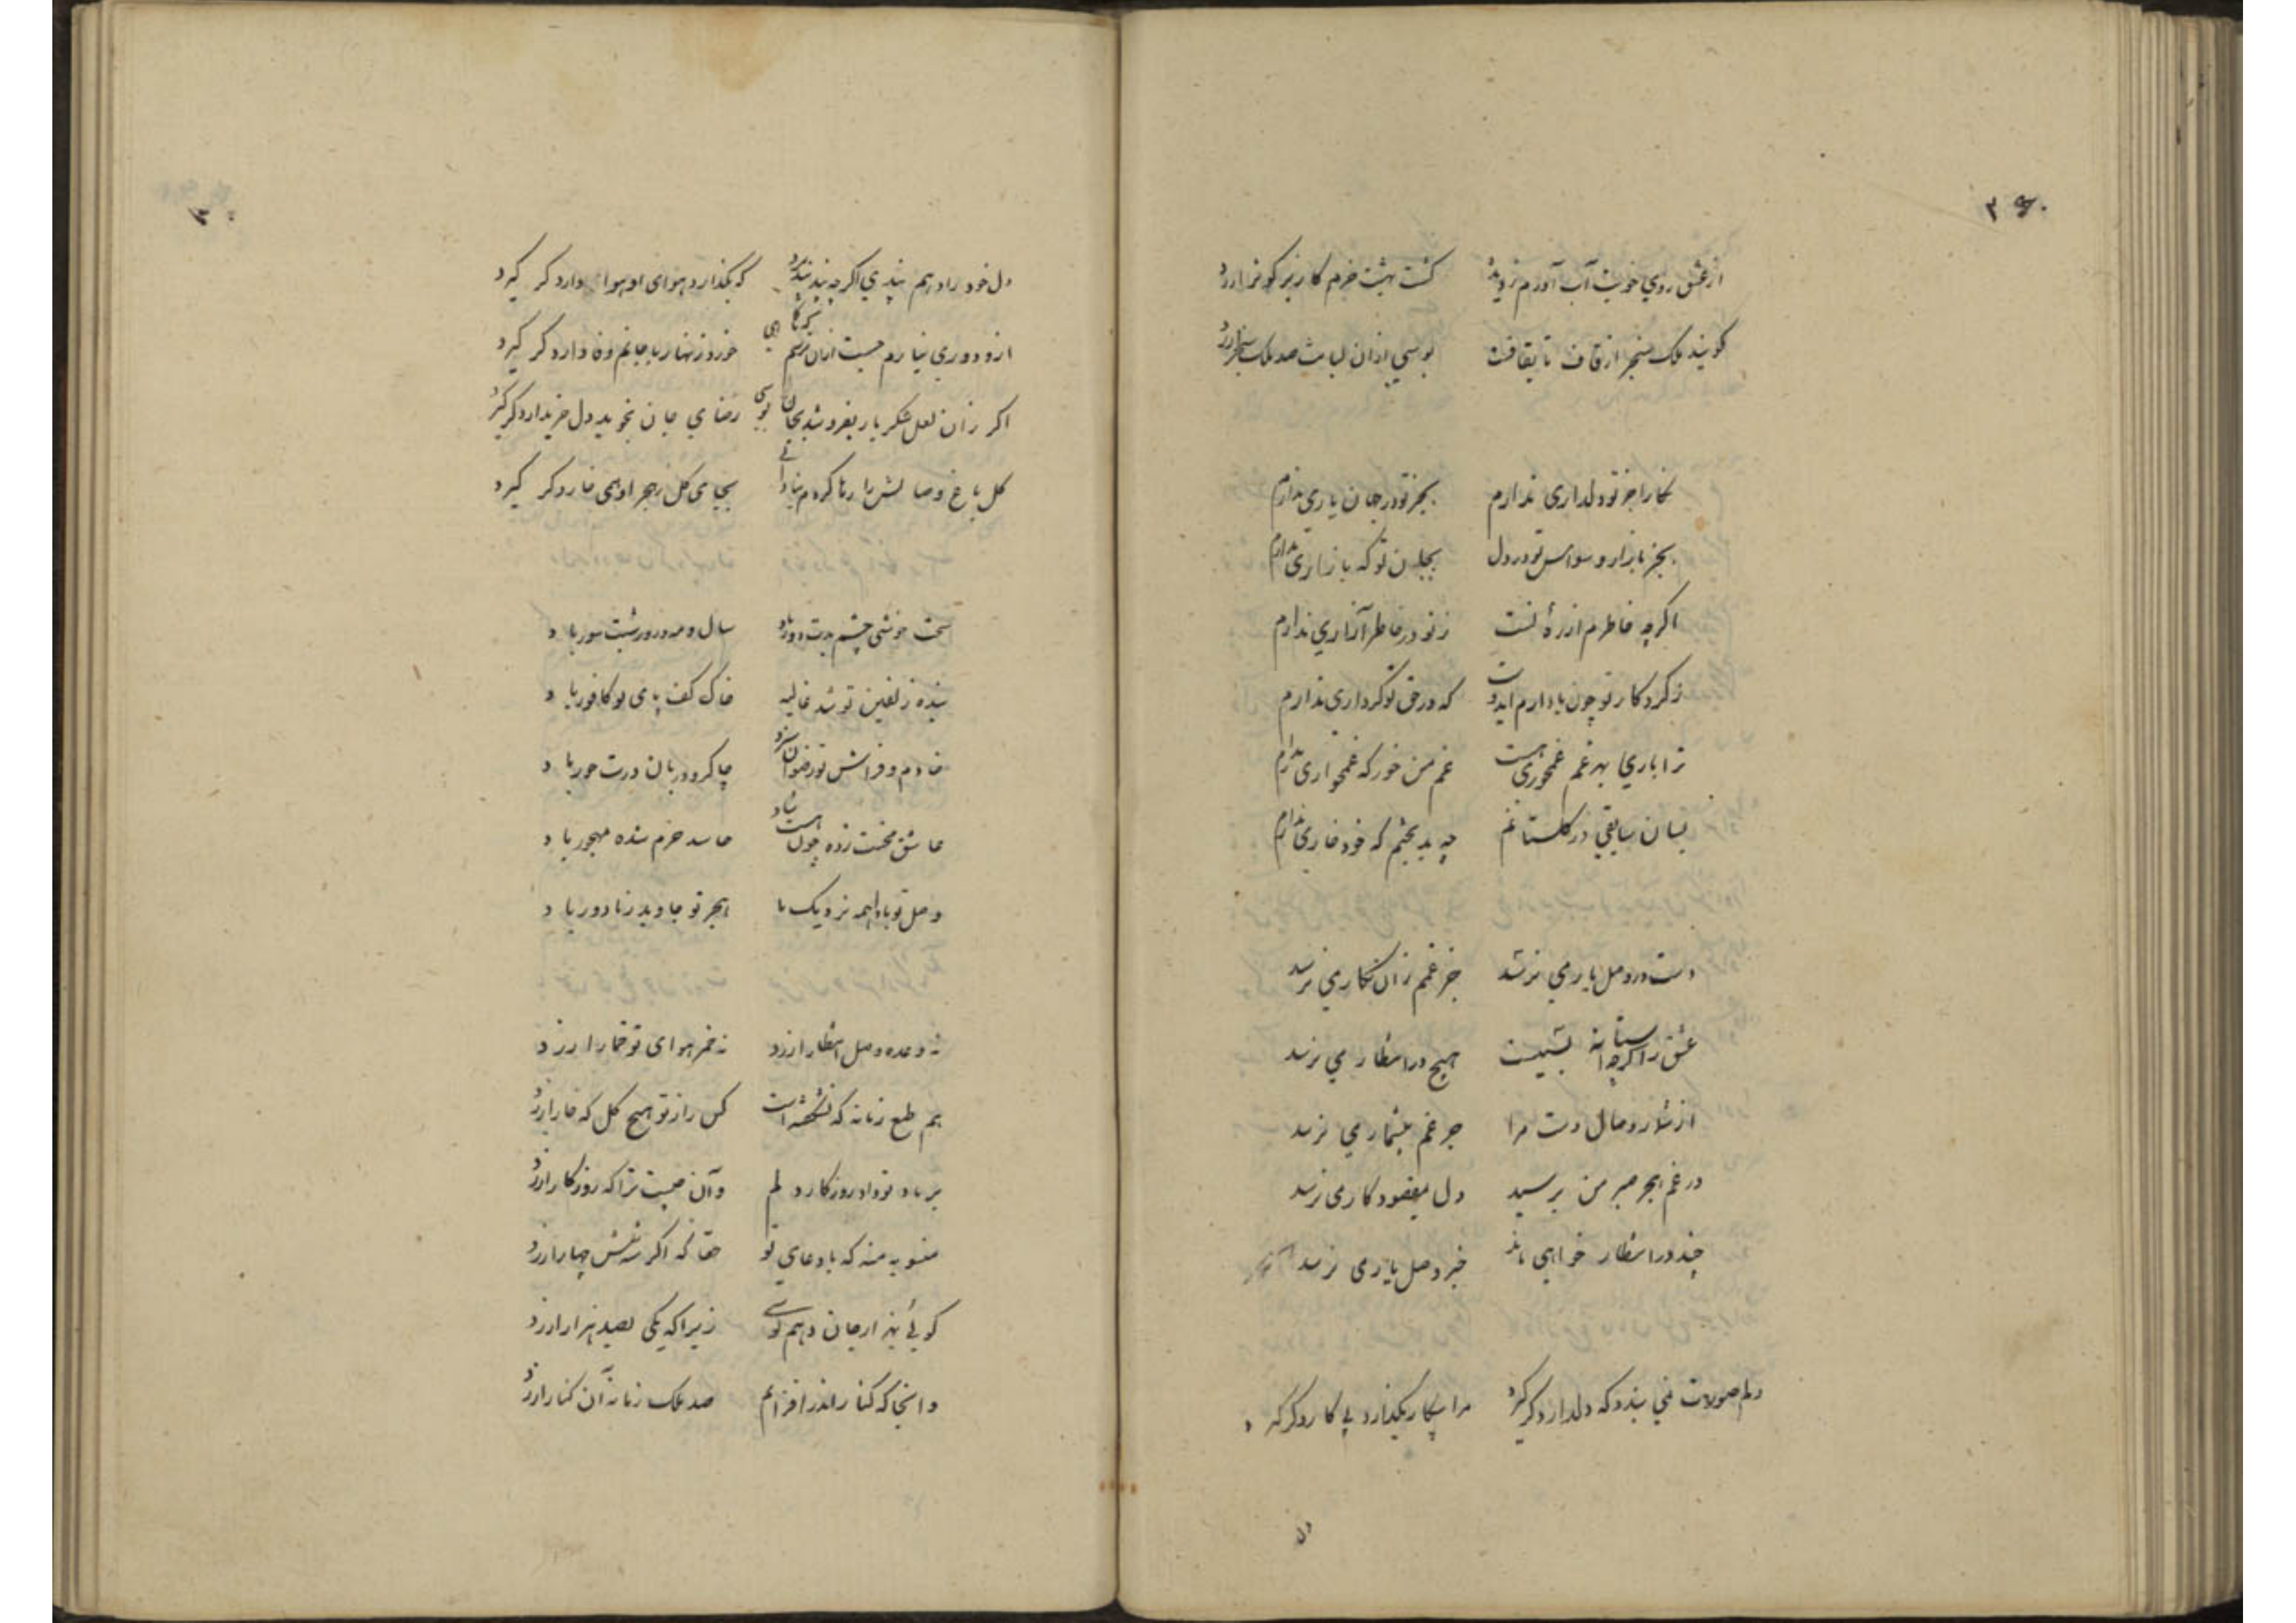 از عشق روی خوبت آب آورم ز دیده کشت بهشت خرم کاریز کوثر ارزد
کویند ملک سنجر از قاف تا بقافست بوسی ازان لبانت صد ملک سنجر ارزد
نکارا جز تو دلداری ندارم بجز تو در جهان یاری ندارم
بجز بازار وسواس تو در دل بجان تو که بازاری ندارم
اکرچه خاطرم ازرده تست ز تو در خاطر آزاری ندارم
ز کردکار تو چون باد دارم که در حق تو کرداری ندارم
ترا باری بهر غم غمخوری هست غم من خور که غمخواری ندارم
بسان سایقی در کلستانم چه بد بختم که خود خاری ندارم
دست در وصل یار می نرسد جز غم زان نکار می نرسد
عشق را کرچه آستانه بسیست هیچ در انتظار می نرسد
از شمار وصال دوست مرا جز غم بیشمار می نرسد
در غم هجر صبر من برسید دل بمقصود کار می نرسد
چند در انتظار خواهی ماند خبر وصل یار می نرسد
دلم صورت نمی بندد که دلدار دکر کیرد مرا بیکار بکذارد پی کار دکر کیرد
دل خود را دهم پندی اکرچه پند نپذیرد که بکذارد هوای او هوادار دکر کیرد
از و دوری نیارم جست ازان ترسم که ناکاهی خورد زنهار با جانم وفادار دکر کیرد
اکر زان لعل شکر بار بفروشد بجان بوسی رضای جان بخوید دل خریدار دکر کیرد
کل باغ وصالش را رها کردم بنادانی بجای کل ز هجر او همی خار دکر کیرد
سخت خوشی چشم بدت دور باد سال و مه و روز و شبت سور باد
بنده زلفین تو شد غالیه خاک کف پای تو کافور باد
خادم و فراش تو رضوان سزد چاکر و دربان درت حور باد
عاشق محنت زده چون هست شاد حاسد خرم شده مهجور باد
وصل تو بادا همه نزدیک ما هجر تو جاوید ز ما دور باد
نه وعده وصل انتظار ارزد نه خمر هوای تو خمار ارزد
هم طبع زمانه که نشکفته است کس را ز تو هیچ کل که خار ارزد
بر باد تو داد روزکار دلم وآن چیست ترا که روزکار ارزد
منسوبه منه که باد عای تو حقا که اکر سه شش چهار ارزد
کوئی بهزار جان دهم بوسی زیرا که یکی بصد هزار ارزد
وانجا که کنار اندر افزایم صد ملک زمانه آن کنار ارزد